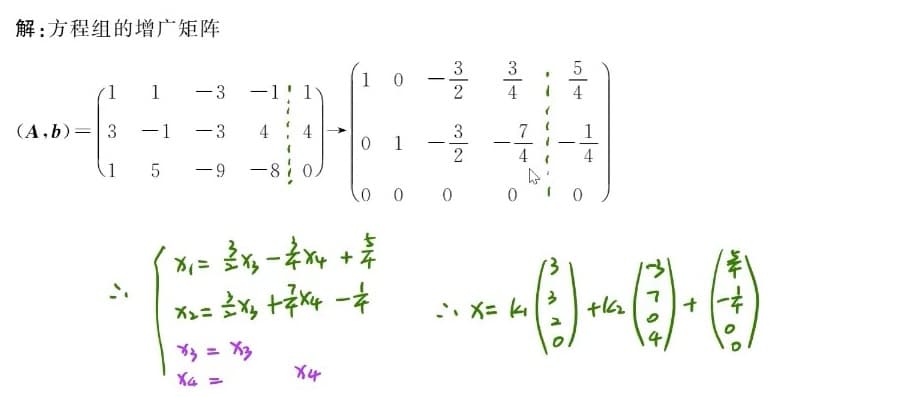 解:方程组的增广矩阵
(A,b)=
1 1 -3 -1 1
3 -1 -3 4 4
1 5 -9 -8 0
→
1 0 -3/2 3/4 5/4
0 1 -3/2 -7/4 -1/4
0 0 0 0 0
∴ x₁= 3/2x₃-3/4x₄+5/4
x₂= 3/2x₃+7/4x₄-1/4
x₃ = x₃
x₄ = x₄
∴ x= k₁(3 3 2 0)+k₂(-3 7 0 4)+(5/4 -1/4 0 0)